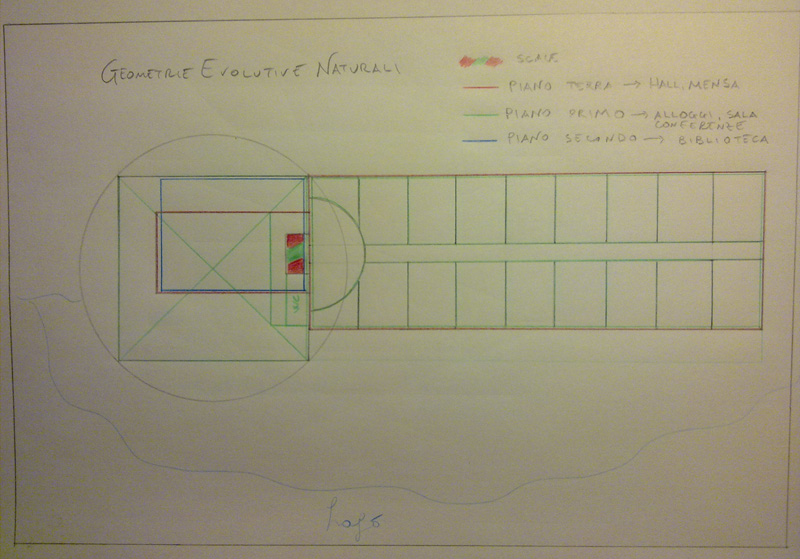 GEOMETRIE EVOLUTIVE NATURALI
SCALE
PIANO TERRA → HALL, MENSA
PIANO PRIMO → ALLOGGI, SALA
CONFERENZE
PIANO SECONDO → BIBLIOTECA
Lago